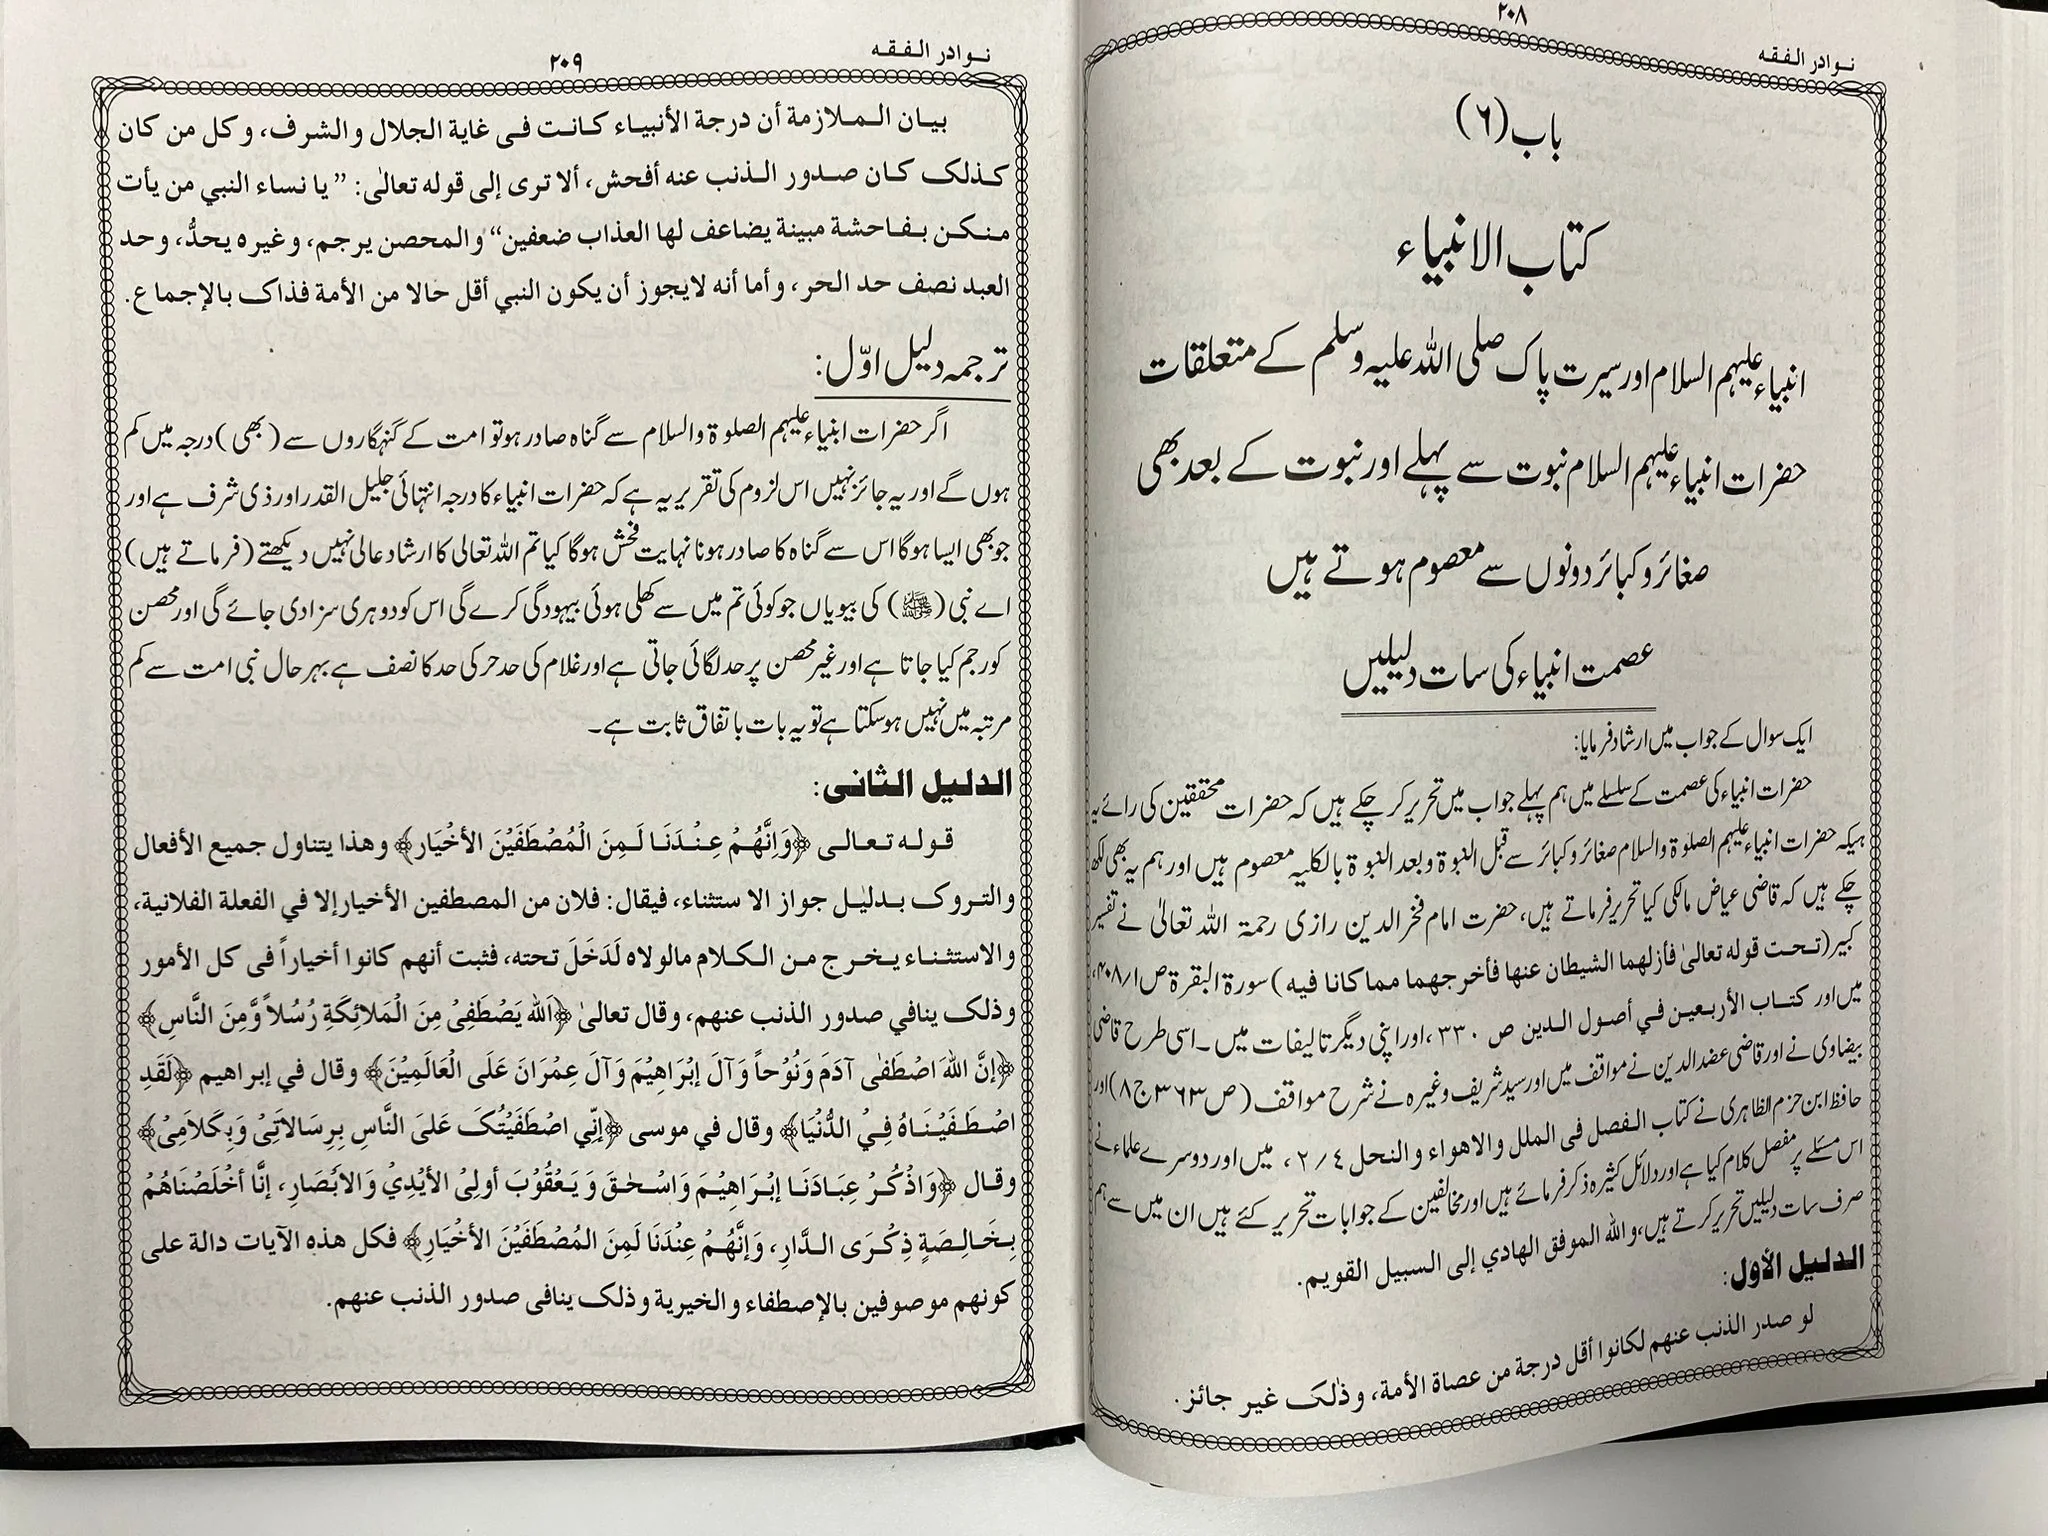 نوادر الفقه
۲۰۸
باب (٦)
کتاب الانبیاء
انبیاء علیہم السلام اور سیرت پاک صلی اللہ علیہ وسلم کے متعلقات
حضرات انبیاء علیہم السلام نبوت سے پہلے اور نبوت کے بعد بھی
صغائر و کبائر دونوں سے معصوم ہوتے ہیں
عصمت انبیاء کی سات دلیلیں
ایک سوال کے جواب میں ارشاد فرمایا:
حضرات انبیاء کی عصمت کے سلسلے میں ہم پہلے جواب میں تحریر کر چکے ہیں کہ حضرات محققین کی رائے یہ
ہیکہ حضرات انبیاء علیہم الصلوٰۃ والسلام صغائر و کبائر سے قبل النبوۃ و بعد النبوۃ بالکلیہ معصوم ہیں اور ہم یہ بھی لکھ
چکے ہیں کہ قاضی عیاض مالکی کیا تحریر فرماتے ہیں، حضرت امام فخر الدین رازی رحمۃ اللہ تعالیٰ نے تفسیر
کبیر (تحت قوله تعالىٰ فأزلهما الشيطان عنها فأخرجهما مما كانا فيه) سورۃ البقرۃ ص۱؍۴۰۸،
میں اور کتاب الأربعین في أصول الدین ص ۳۳۰، اور اپنی دیگر تالیفات میں۔ اسی طرح قاضی
بیضاوی نے اور قاضی عضد الدین نے مواقف میں اور سید شریف وغیرہ نے شرح مواقف (ص ۳۶۳ ج ۸) اور
حافظ ابن حزم الظاہری نے کتاب الفصل فی الملل والاهواء والنحل ٤؍۲، میں اور دوسرے علماء نے
اس مسئلے پر مفصل کلام کیا ہے اور دلائل کثیرہ ذکر فرمائے ہیں اور مخالفین کے جوابات تحریر کئے ہیں ان میں سے ہم
صرف سات دلیلیں تحریر کرتے ہیں، والله الموفق الهادي إلى السبيل القويم.
الدليل الأول:
لو صدر الذنب عنهم لكانوا أقل درجة من عصاة الأمة، وذٰلک غير جائز.
نوادر الفقه
۲۰۹
بيان الملازمة أن درجة الأنبياء كانت فى غاية الجلال والشرف، وكل من كان
كذلک كان صدور الذنب عنه أفحش، ألا ترى إلى قوله تعالىٰ: ”يا نساء النبي من يأت
منكن بفاحشة مبينة يضاعف لها العذاب ضعفين“ والمحصن يرجم، وغيره يحدُّ، وحد
العبد نصف حد الحر، وأما أنه لايجوز أن يكون النبي أقل حالا من الأمة فذاک بالإجماع.
ترجمہ دلیل اوّل:
اگر حضرات انبیاء علیہم الصلوۃ والسلام سے گناہ صادر ہو تو امت کے گنہگاروں سے (بھی) درجہ میں کم
ہوں گے اور یہ جائز نہیں اس لزوم کی تقریر یہ ہے کہ حضرات انبیاء کا درجہ انتہائی جلیل القدر اور ذی شرف ہے اور
جو بھی ایسا ہوگا اس سے گناہ کا صادر ہونا نہایت فحش ہوگا کیا تم اللہ تعالی کا ارشاد عالی نہیں دیکھتے (فرماتے ہیں)
اے نبی (ﷺ) کی بیویاں جو کوئی تم میں سے کھلی ہوئی بیہودگی کرے گی اس کو دوہری سزا دی جائے گی اور محصن
کو رجم کیا جاتا ہے اور غیر محصن پر حد لگائی جاتی ہے اور غلام کی حد حر کی حد کا نصف ہے بہر حال نبی امت سے کم
مرتبہ میں نہیں ہوسکتا ہے تو یہ بات باتفاق ثابت ہے۔
الدليل الثانى:
قوله تعالى ﴿وَإِنَّهُمْ عِنْدَنَا لَمِنَ الْمُصْطَفَيْنَ الأخْيَار﴾ وهذا يتناول جميع الأفعال
والتروک بدليل جواز الاستثناء، فيقال: فلان من المصطفين الأخيار إلا في الفعلة الفلانية،
والاستثناء يخرج من الكلام مالولاه لَدَخَلَ تحته، فثبت أنهم كانوا أخياراً فى كل الأمور
وذلک ينافي صدور الذنب عنهم، وقال تعالىٰ ﴿اَللهُ يَصْطَفِىْ مِنَ الْمَلائِكَةِ رُسُلاً وَّمِنَ النَّاسِ﴾
﴿إنَّ اللهَ اصْطَفٰى آدَمَ وَنُوْحاً وَآلَ إبْرَاهِيْمَ وَآلَ عِمْرَانَ عَلَى الْعَالَمِيْنَ﴾ وقال في إبراهيم ﴿لَقَدِ
اصْطَفَيْنَاهُ فِيْ الدُّنْيَا﴾ وقال في موسى ﴿إنِّي اصْطَفَيْتُكَ عَلَى النَّاسِ بِرِسَالاَتِىْ وَبِكَلامِىْ﴾
وقال ﴿وَاذْكُرْ عِبَادَنَا إبْرَاهِيْمَ وَاسْحٰقَ وَيَعْقُوْبَ أولِىْ الأيْدِيْ وَالابْصَارِ، إنَّا أخْلَصْنَاهُمْ
بِخَالِصَةٍ ذِكْرَى الدَّارِ، وَإنَّهُمْ عِنْدَنَا لَمِنَ المُصْطَفَيْنَ الأخْيَارِ﴾ فكل هذه الآيات دالة على
كونهم موصوفين بالإصطفاء والخيرية وذلک ينافى صدور الذنب عنهم.